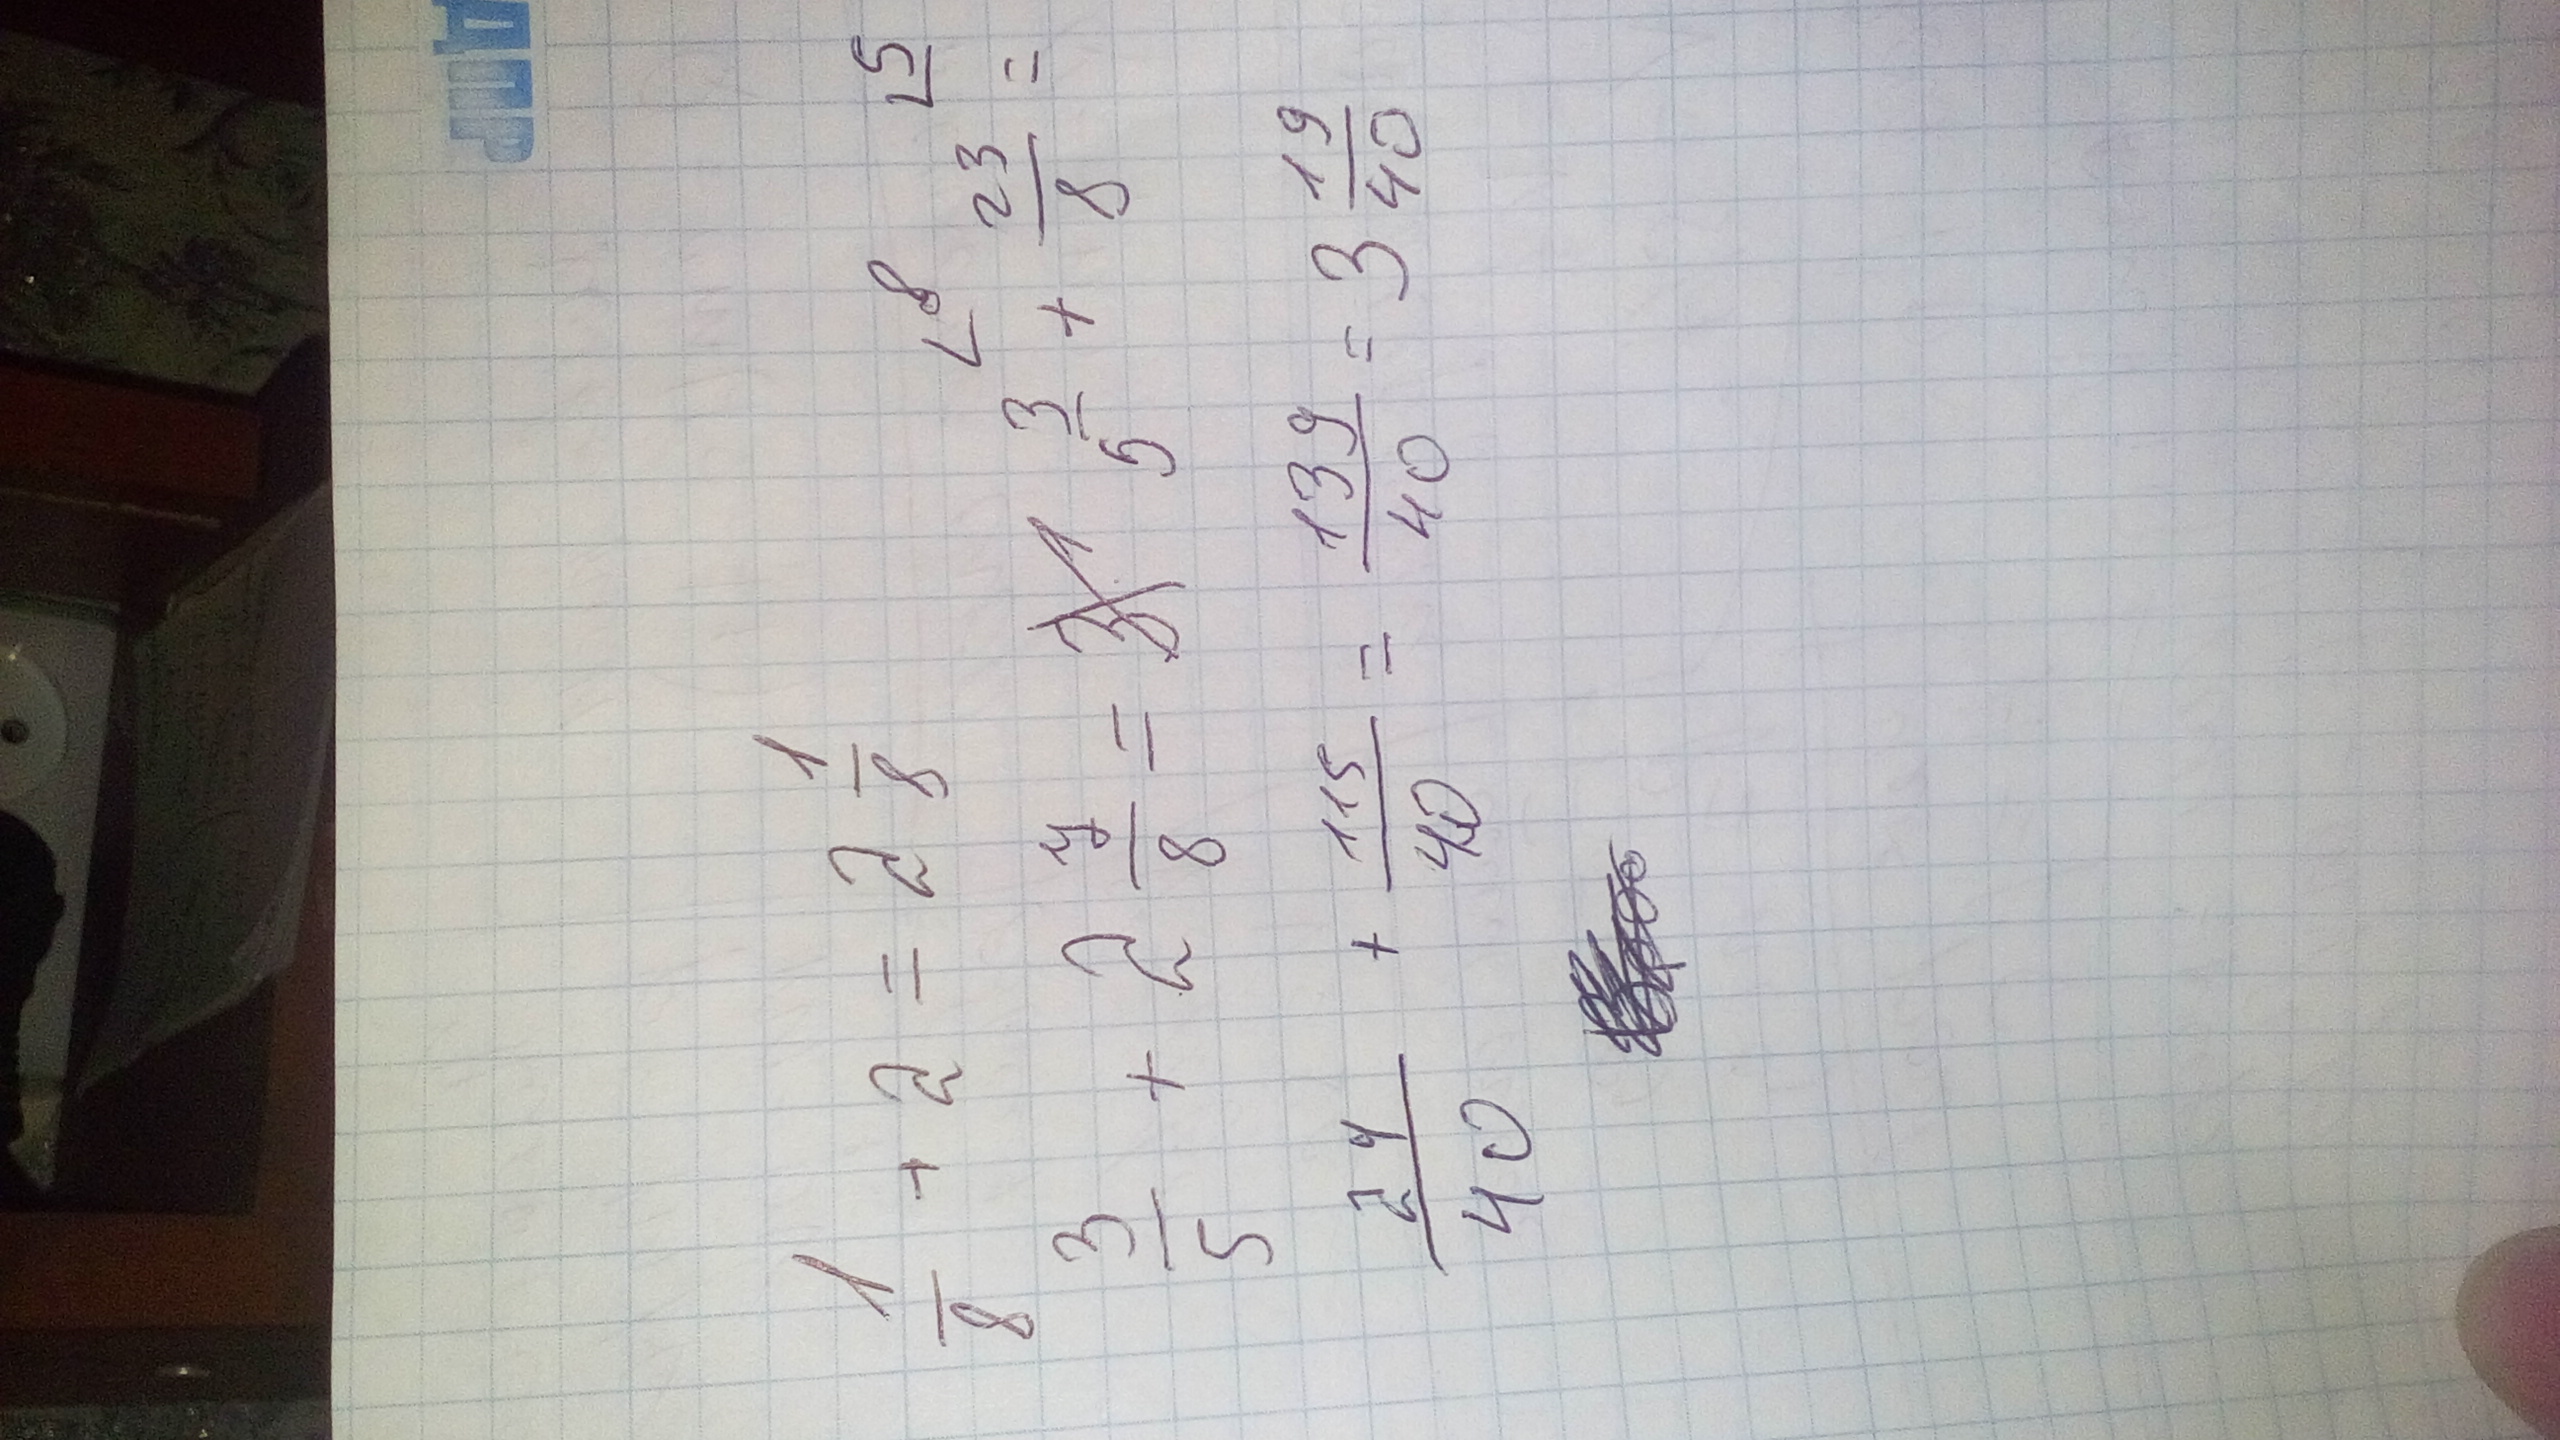 ЛДПР
1/8 + 2 = 2 1/8
3/5 + 2 7/8 = 3/5 ⌊8 + 23/8 ⌊5 =
24/40 + 115/40 = 139/40 = 3 19/40